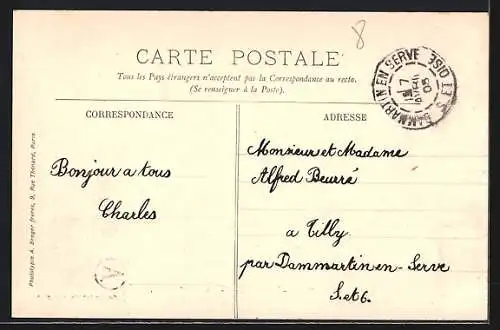 8
CARTE POSTALE
Tous les Pays étrangers n'acceptent pas la Correspondance au recto.
(Se renseigner à la Poste).
DAMMARTIN EN SERVE
SEINE ET OISE
7
05
CORRESPONDANCE
Bonjour a tous
Charles
A
ADRESSE
Monsieur et Madame
Alfred Beurré
a Tilly
par Dammartin-en-Serve
S. et O.
Phototypie A. Breger frères, 9, Rue Thénard, Paris